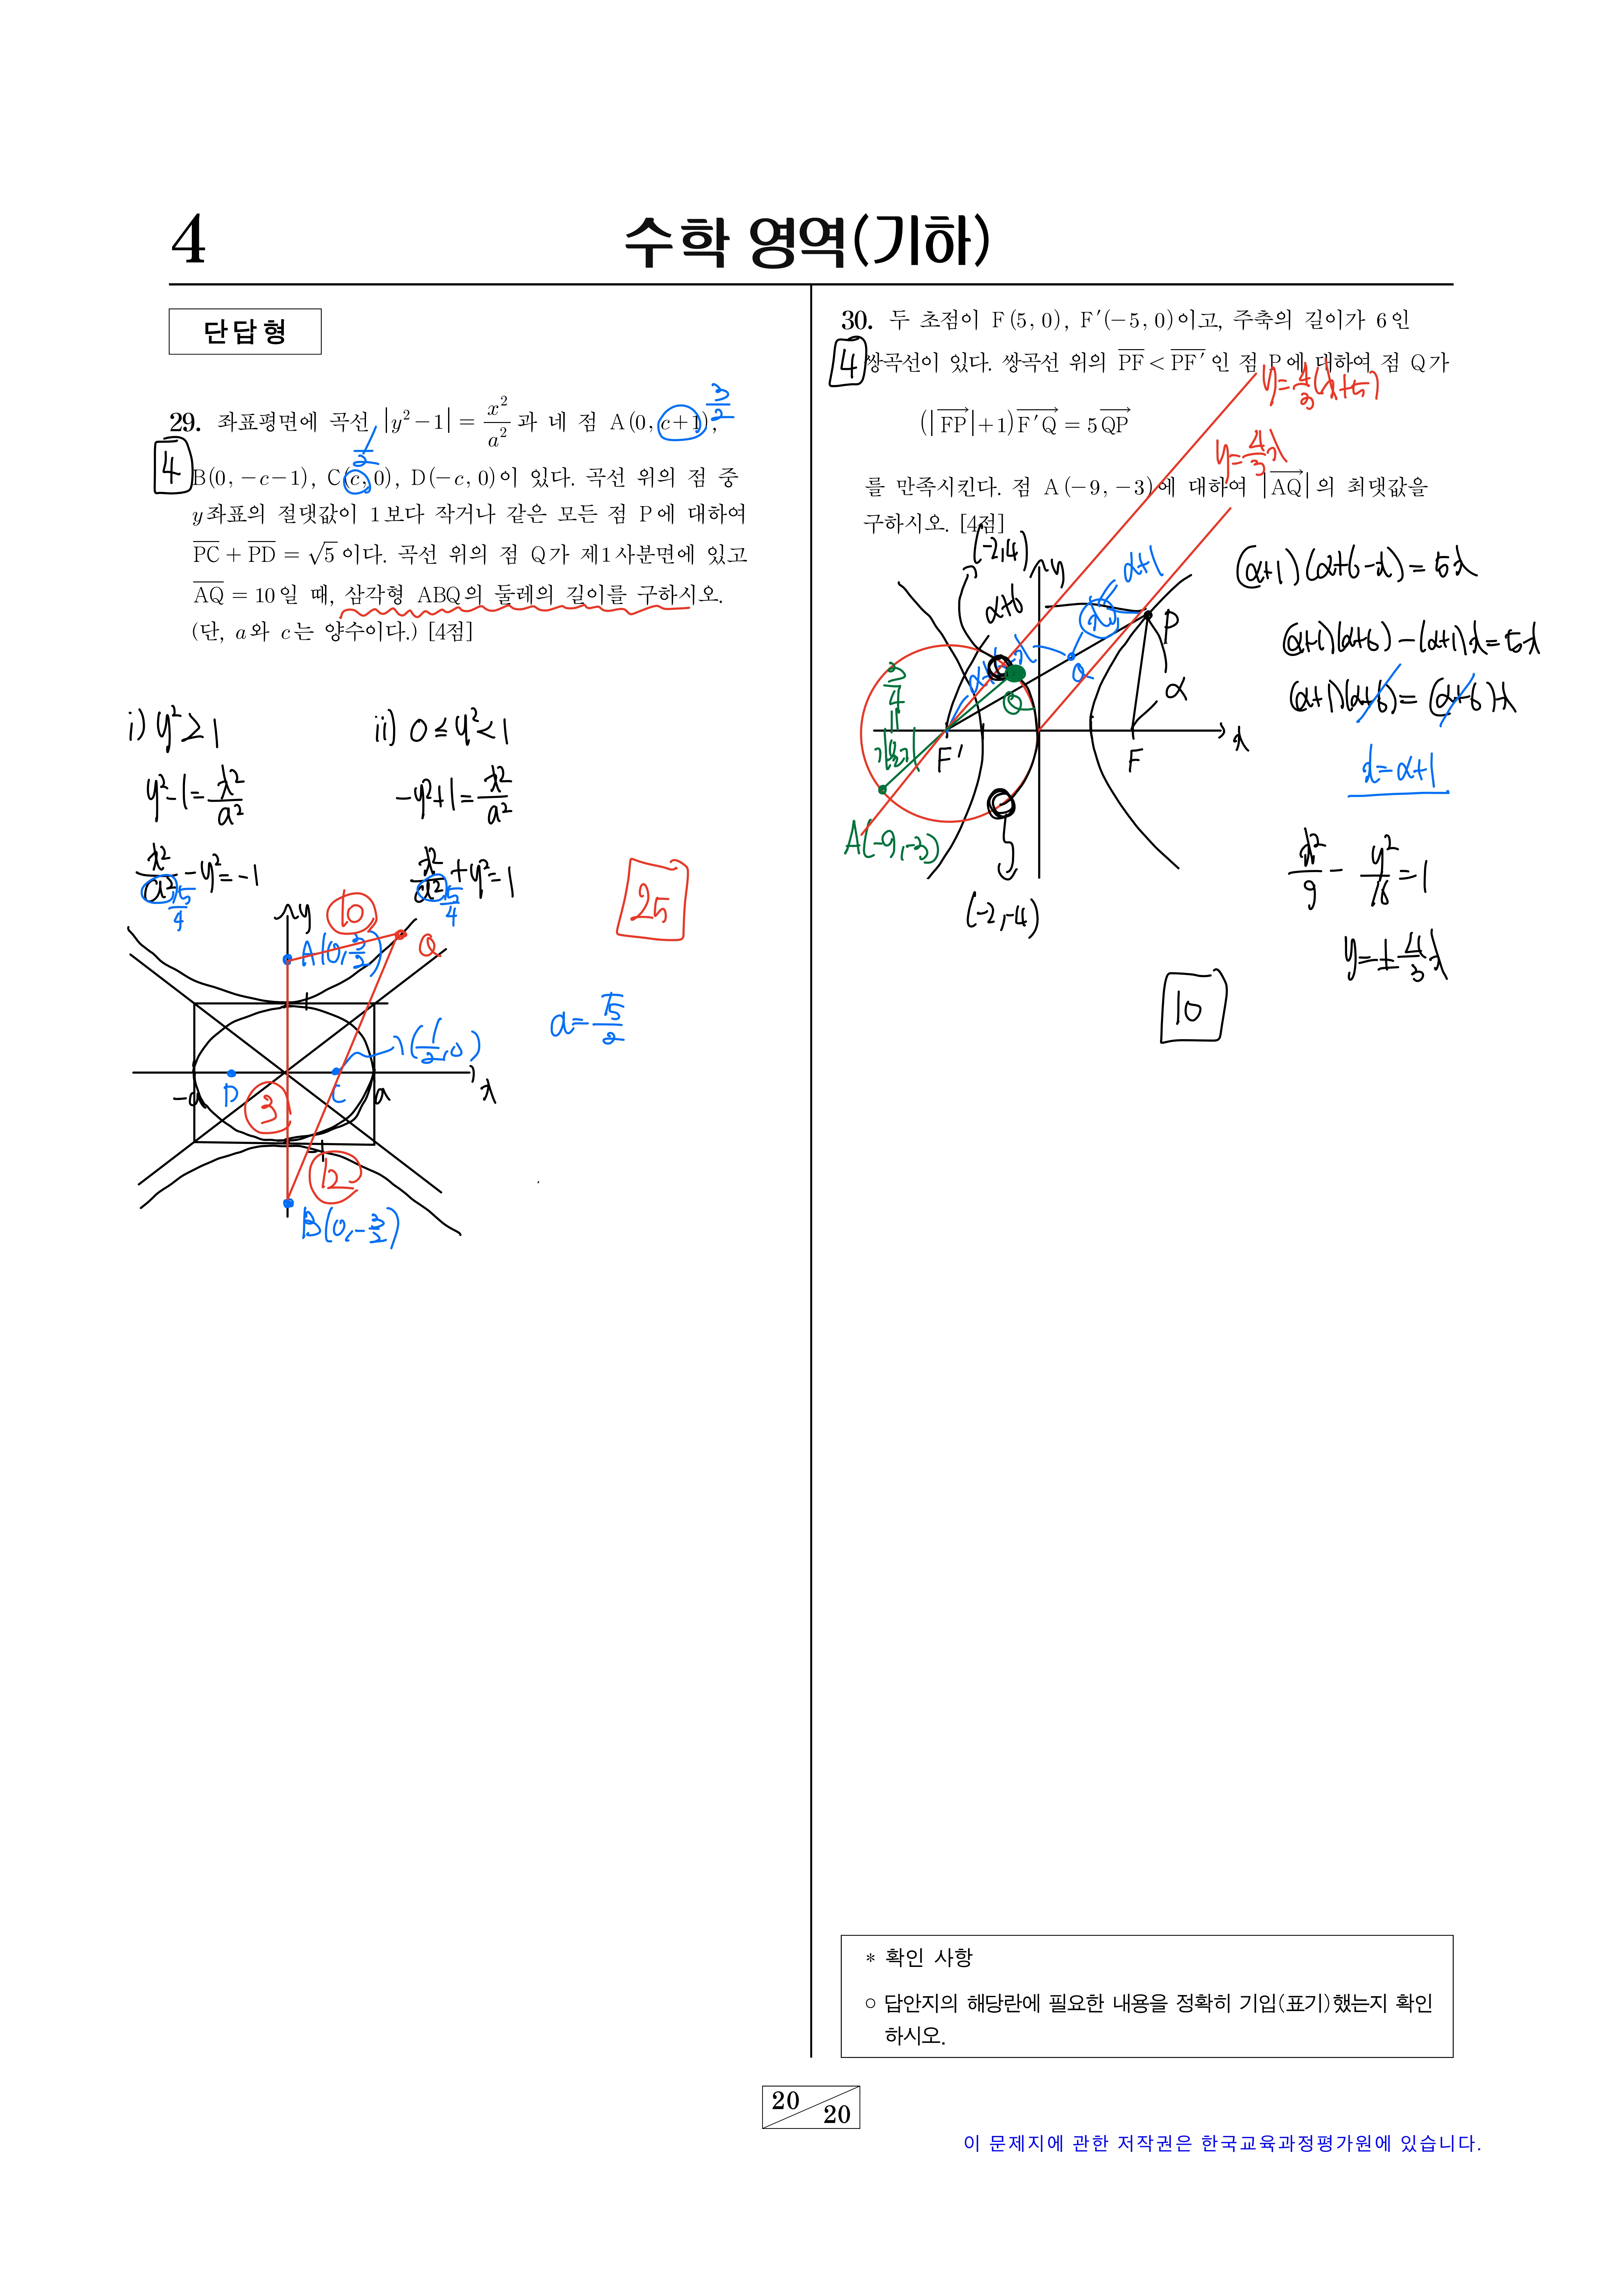 4
수학 영역(기하)
단답형
29. 좌표평면에 곡선 |y²-1| = x²/a² 과 네 점 A(0, c+1),
3/2
1/2
4
B(0, -c-1), C(c, 0), D(-c, 0)이 있다. 곡선 위의 점 중
y좌표의 절댓값이 1보다 작거나 같은 모든 점 P에 대하여
PC + PD = √5 이다. 곡선 위의 점 Q가 제1사분면에 있고
AQ = 10일 때, 삼각형 ABQ의 둘레의 길이를 구하시오.
(단, a와 c는 양수이다.) [4점]
i) y² ≥ 1
y²-1 = x²/a²
x²/a² - y² = -1
5/4
ii) 0 ≤ y² < 1
-y²+1 = x²/a²
x²/a² + y² = 1
5/4
25
10
y
A(0, 3/2)
Q
1
a = √5/2
(1/2, 0)
-a
D
3
C
a
x
-1
12
B(0, -3/2)
30. 두 초점이 F(5, 0), F′(-5, 0)이고, 주축의 길이가 6인
4
쌍곡선이 있다. 쌍곡선 위의 PF < PF′ 인 점 P에 대하여 점 Q가
y = 4/3(x+5)
(|FP|+1)F′Q = 5QP
y = 4/3x
를 만족시킨다. 점 A(-9, -3)에 대하여 |AQ| 의 최댓값을
구하시오. [4점]
(-2, 4)
y
α+1
α+6
x
P
α+6-x
Q
α
Q
F′
F
x
A(-9, -3)
(-2, -4)
(α+1)(α+6-x) = 5x
(α+1)(α+6) - (α+1)x = 5x
(α+1)(α+6) = (α+6)x
x = α+1
x²/9 - y²/16 = 1
y = ± 4/3x
10
* 확인 사항
○ 답안지의 해당란에 필요한 내용을 정확히 기입(표기)했는지 확인
하시오.
20
20
이 문제지에 관한 저작권은 한국교육과정평가원에 있습니다.